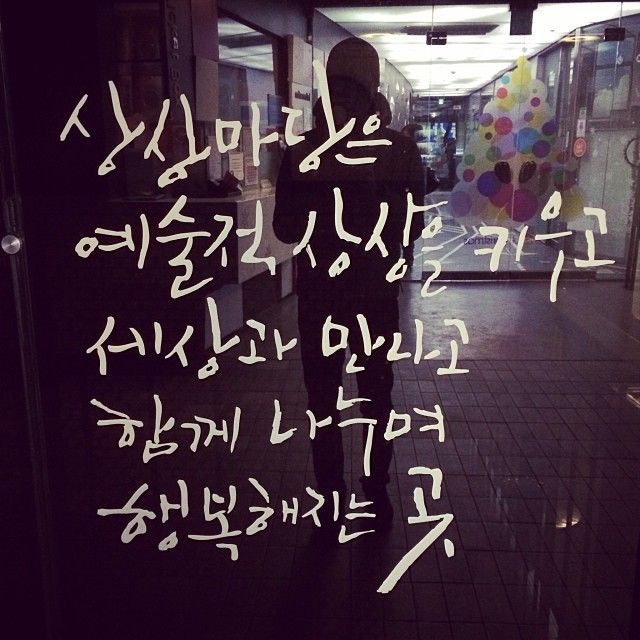 상상마당은
예술적 상상을 키우고
세상과 만나고
함께 나누며
행복해지는 곳.